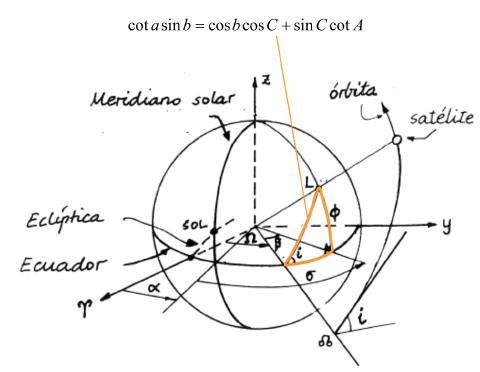 cot a sin b = cos b cos C + sin C cot A
z
Meridiano solar
órbita
satélite
L
ϕ
Eclíptica
SOL
Ω
β
y
Ecuador
i
σ
α
♈
☊
i